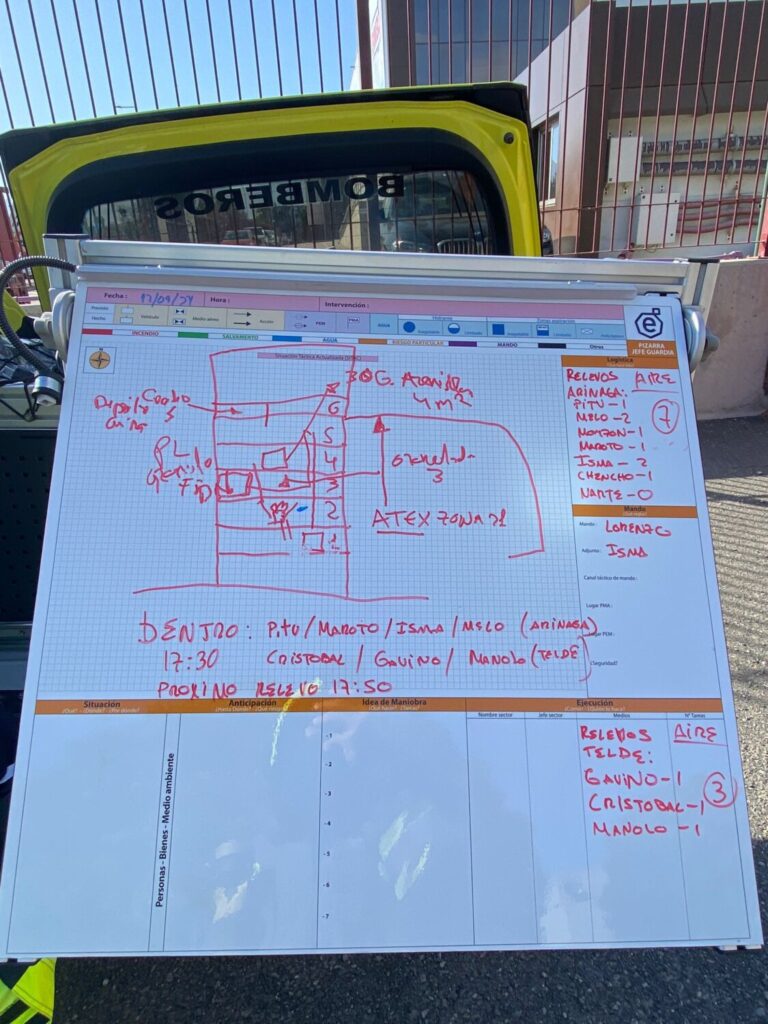 BOMBEROS
Fecha : 12/09/24 Hora : Intervención :
Previsto
Hecho
Vehículo
Medio aéreo
Acción
PEM
PMA
AGUA
Hidrante
INCENDIO SALVAMENTO AGUA RIESGO PARTICULAR MANDO Otros
PIZARRA
JEFE GUARDIA
N
Situación Táctica Actualizada (SITAC)
6
5
4
3
2
1
4 m2
3
ATEX ZONA 21
DENTRO: PITU/MAROTO/ISMA/MELO (ARINAGA)
17:30 CRISTOBAL / GAVINO / MANOLO (TELDE)
PROXIMO RELEVO 17:50
Logística
RELEVOS AIRE
ARINAGA:
PITU-1
MELO-2
MONZON-1
MAROTO-1
ISMA-2
CHENCHO-1
NARTE-0
7
Mando
Mando : LORENZO
Adjunto : ISMA
Canal táctico de mando :
Lugar PMA :
Lugar PEM :
¿Seguridad?
Situación
Anticipación
Idea de Maniobra
Ejecución
Nombre sector Jefe sector Medios Nº Tamas
Personas - Bienes - Medio ambiente
- 1
- 2
- 3
- 4
- 5
- 6
- 7
RELEVOS AIRE
TELDE:
GAVINO-1
CRISTOBAL-1
MANOLO-1
3